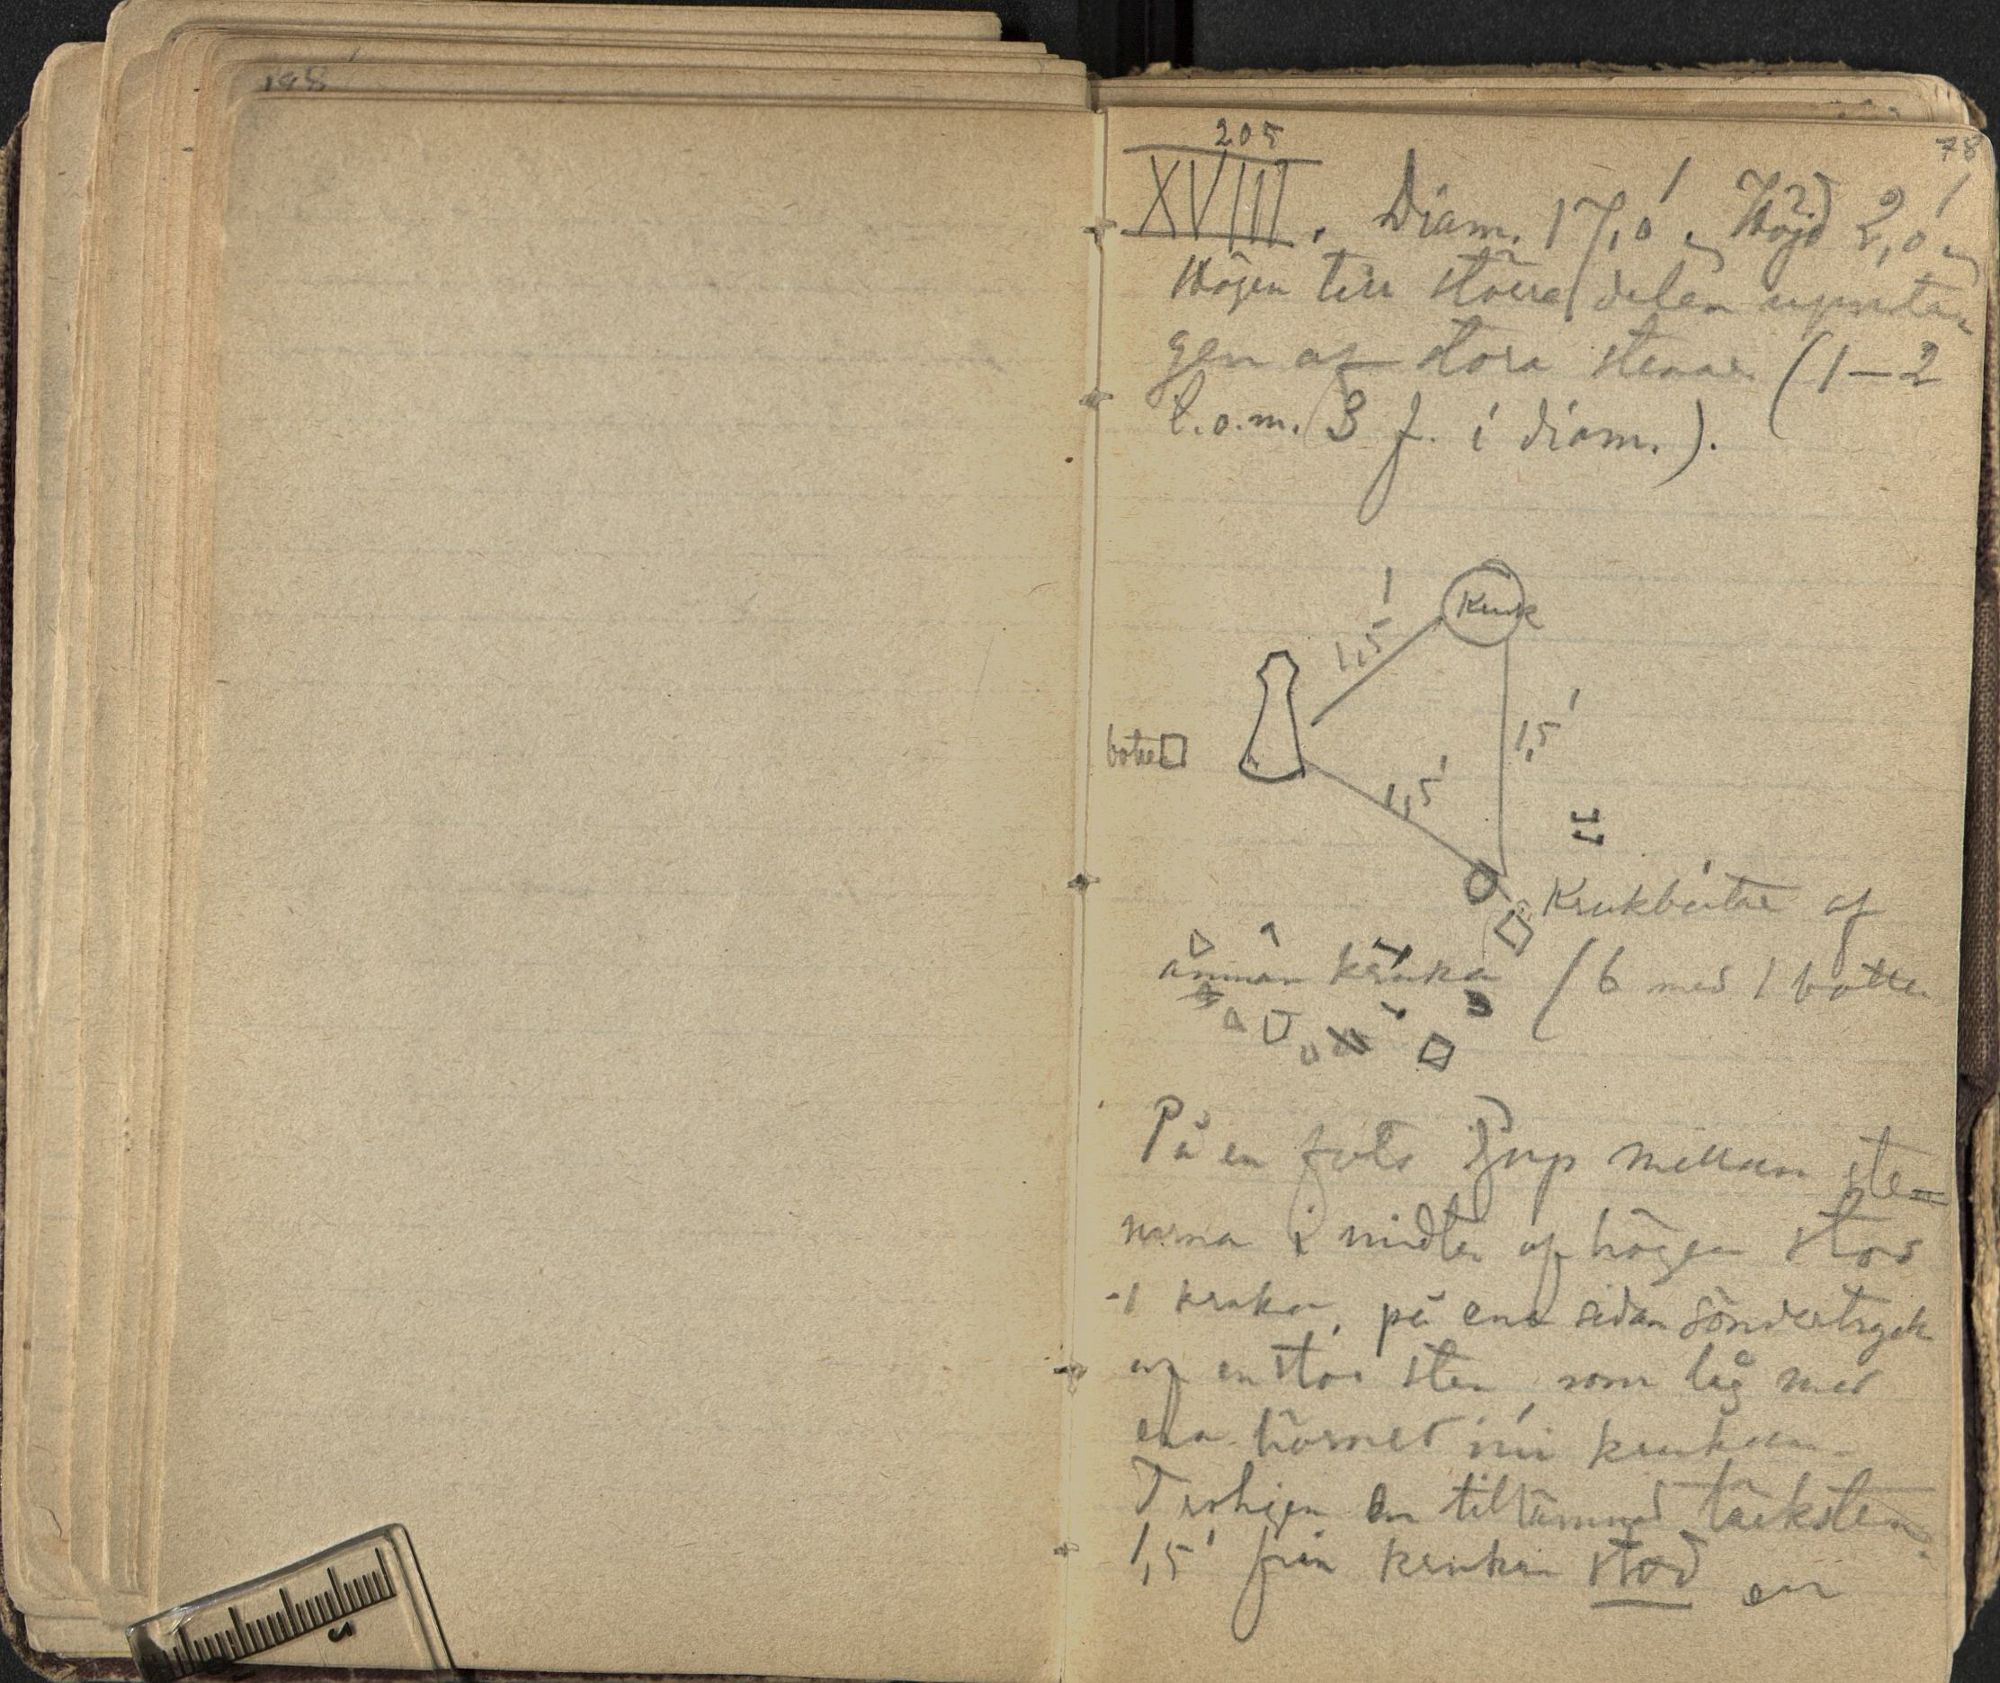 198
78
205
XVIII. Diam. 17,0'. Höjd 2,0'
Högen till större delen uppta-
gen af stora stenar (1–2
t.o.m. 3 f. i diam.).
Kruk
1,5'
1,5'
botten
1,5'
Krukbitar af
annan kruka (6 med 1 botten
På en fots djup mellan ste=
narna i midten af högen stod
1 kruka, på ena sidan söndertryckt
af en stor sten som låg med
ena hörnet inne i krukan.
Troligen en tillämnad täcksten.
1,5' från krukan stod en